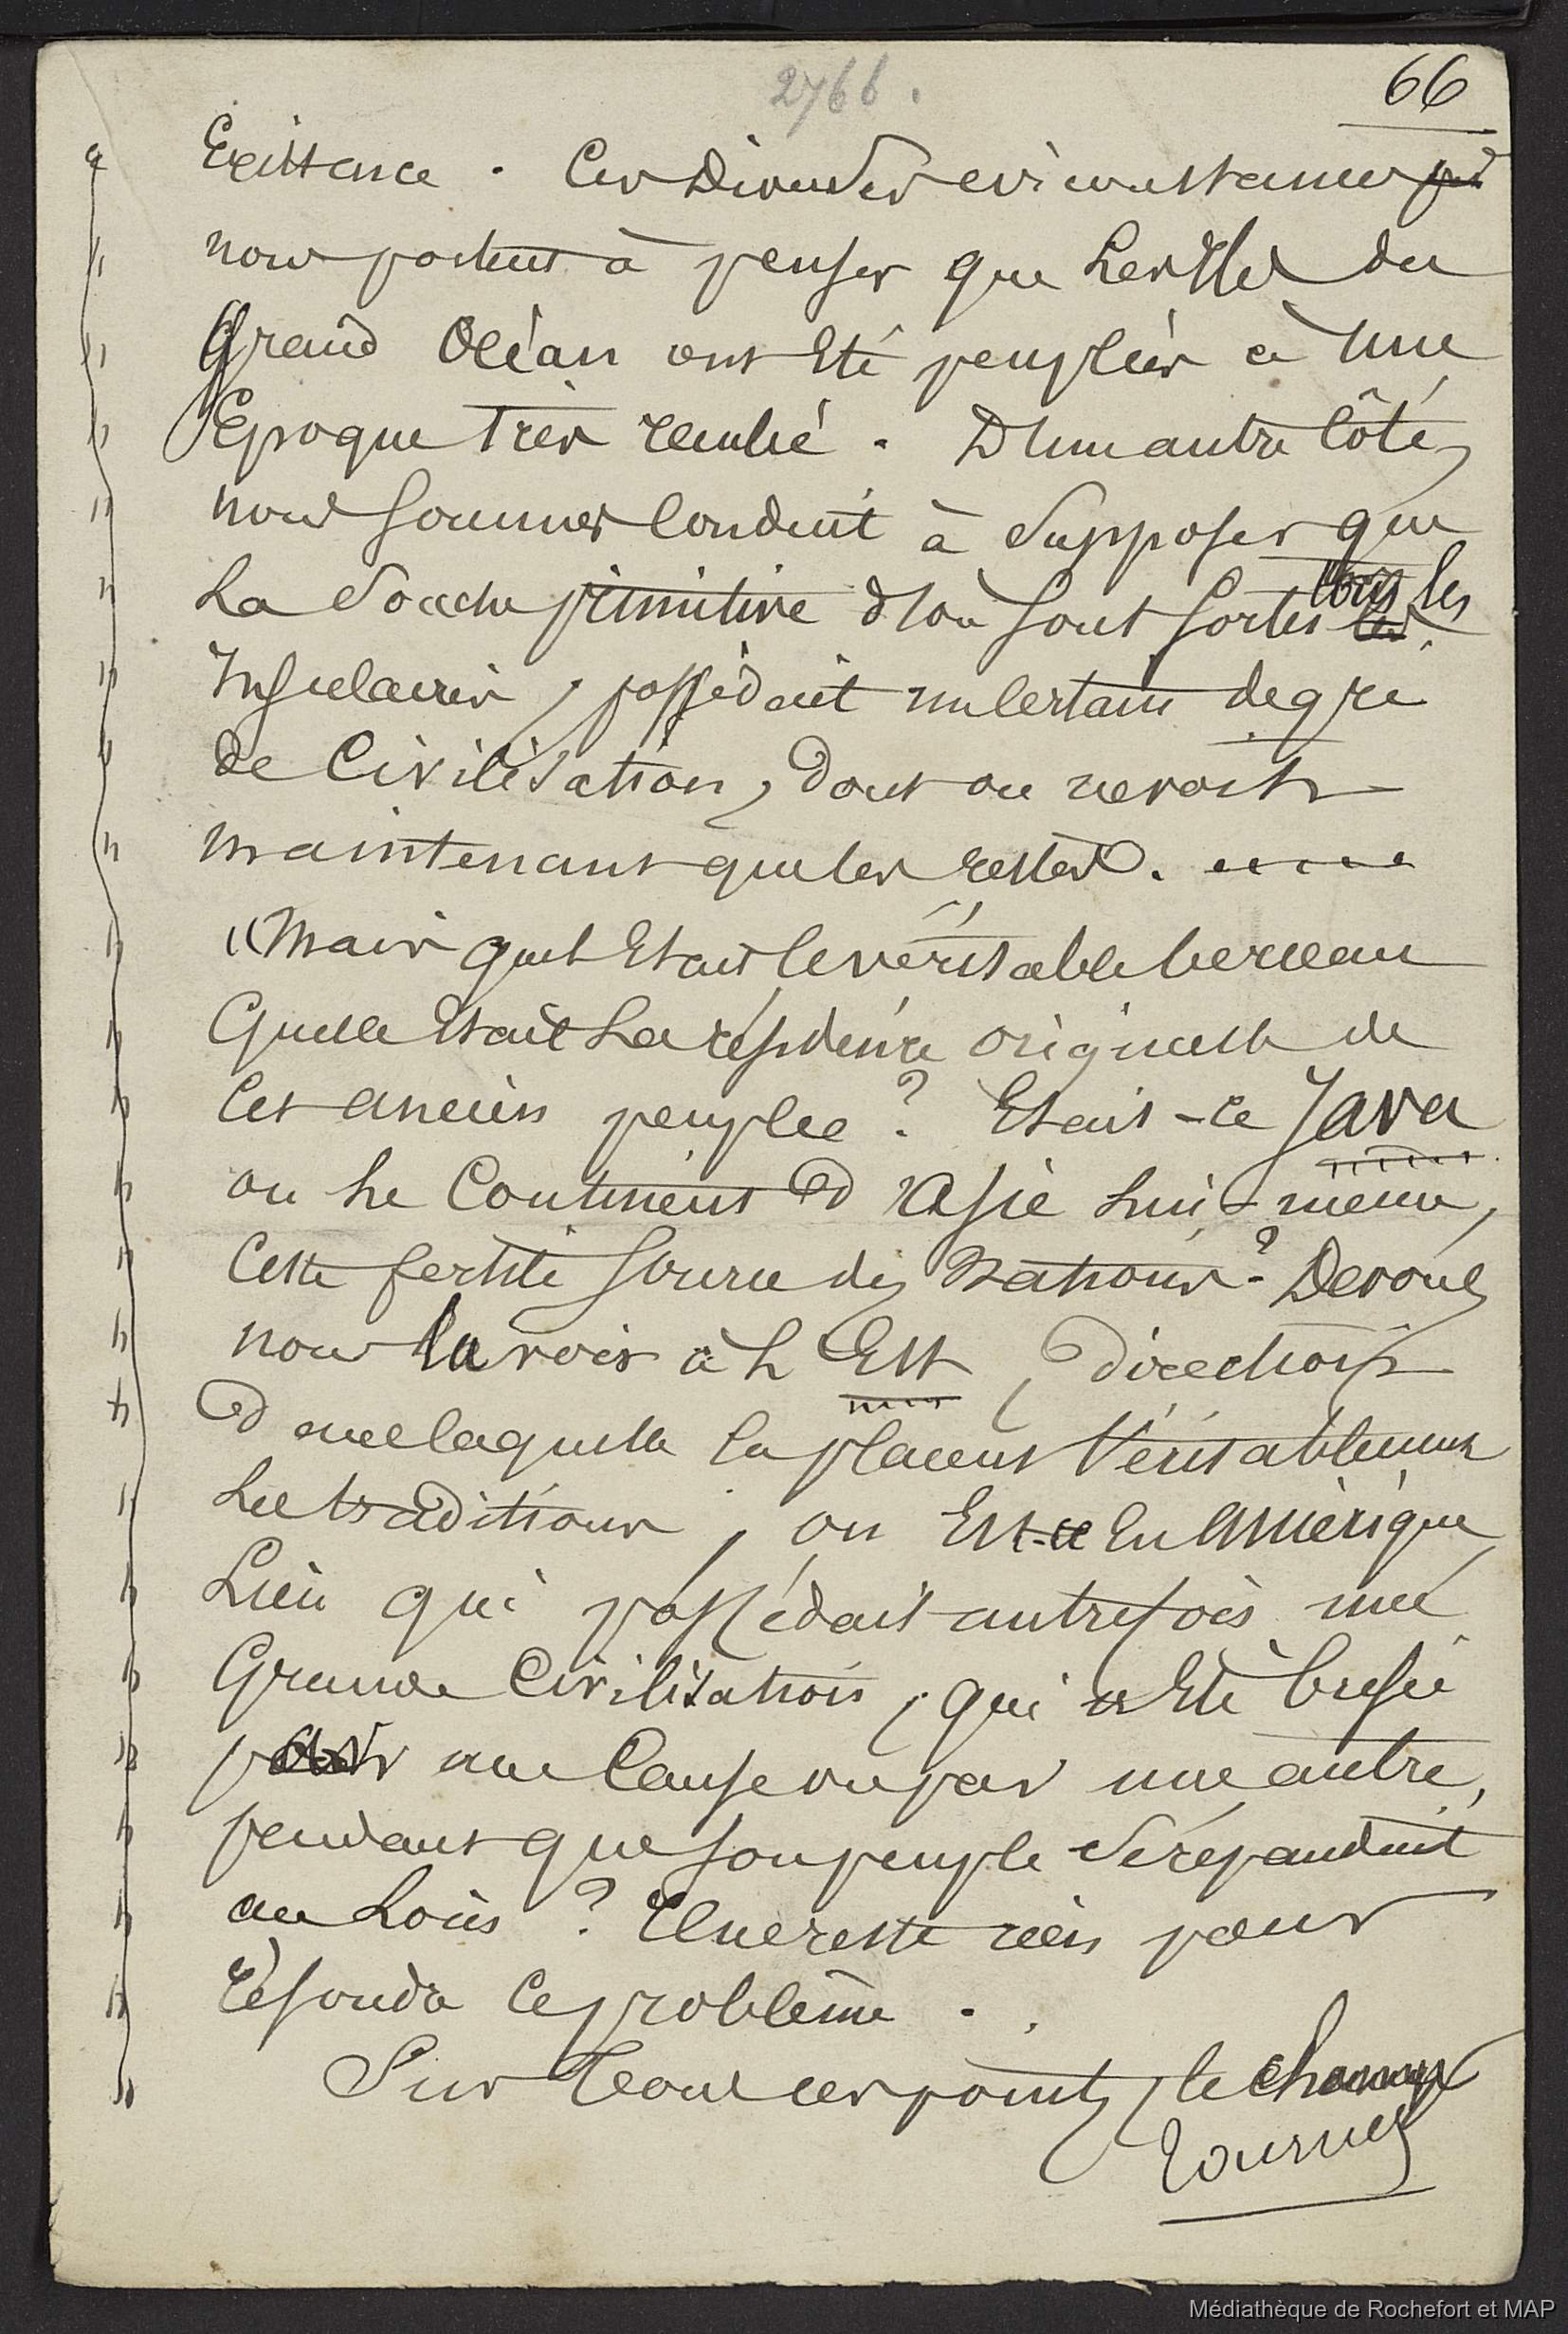 2766.
66
Existance. Ces Diverses circonstances
nous portent à penser que Les Iles du
Grand Océan ont Eté peuplées à Une
Epoque Très reculié. D'une autre Côté,
nous sommes Conduit à Supposer que
La Souche primitive d'où sont sortis tous les
Insulaires, possédait un Certain degré
de Civilisation, dont on ne voit
maintenant que les restes.
"Mais quel Etait le véritable berceau
Quelle Etait La résidence originelle de
Ces anciens peuples? Etait-ce Java
ou Le Continent d'Asie Lui-même,
Cette fertile source des Nations? Devons
nous la voir à L'Est, direction
dans laquelle la placent Véritablement
Les traditions, ou Est-ce En Amérique,
Lieu qui possédait autrefois une
Grande Civilisation, qui a Eté brisée
par une Cause ou par une autre,
pendant que son peuple Se répandait
au Loin? Il ne reste rien pour
résoudre Ce problème.
Sur Tous ces points, le champ
Tournez
Médiathèque de Rochefort et MAP